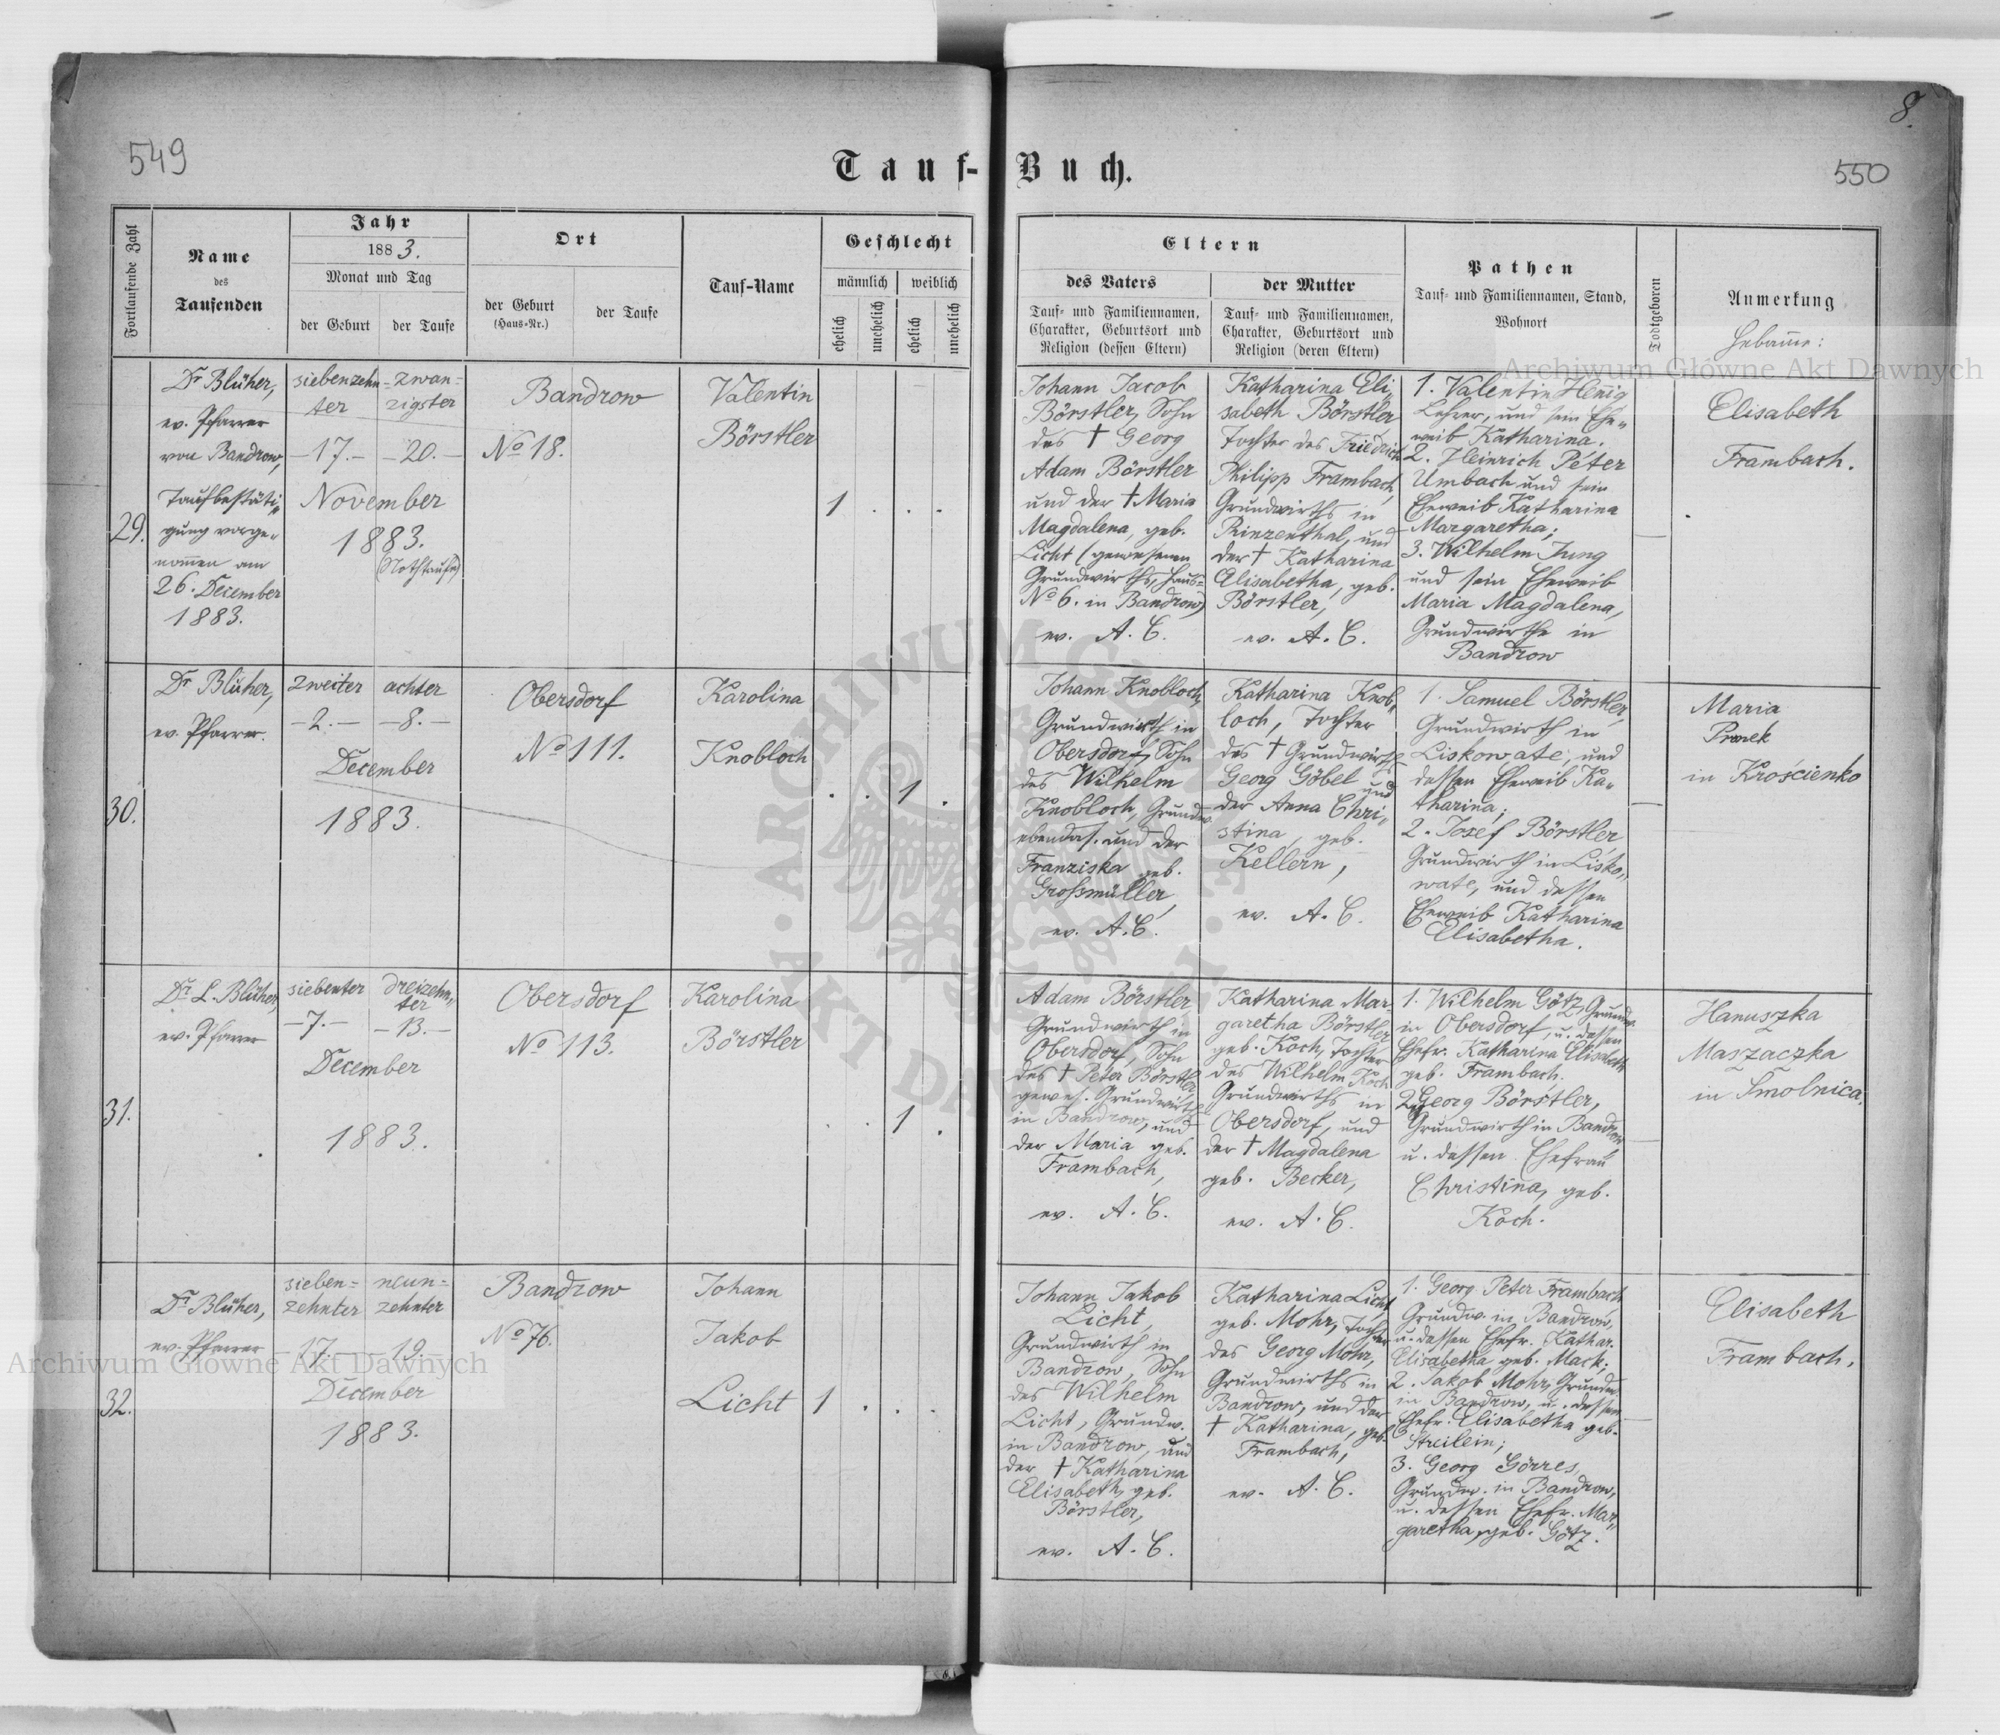 549
8.
Tauf-Buch.
550
Fortlaufende Zahl
Name
des
Taufenden
Jahr
1883.
Monat und Tag
der Geburt
der Taufe
Ort
der Geburt
(Haus-Nr.)
der Taufe
Tauf-Name
Geschlecht
männlich
weiblich
ehelich
unehelich
ehelich
unehelich
Eltern
des Vaters
Tauf- und Familiennamen,
Charakter, Geburtsort und
Religion (dessen Eltern)
der Mutter
Tauf- und Familiennamen,
Charakter, Geburtsort und
Religion (deren Eltern)
Pathen
Tauf- und Familiennamen, Stand,
Wohnort
Todtgeboren
Anmerkung
Hebamme:
29.
Dr Blüher,
ev. Pfarrer
von Bandrow,
Taufbestäti-
gung vorge-
nommen am
26. December
1883.
siebenzehn-
ter
-17.-
zwan-
zigster
-20.-
November
1883.
(Nothtaufe)
Bandrow
No 18.
Valentin
Börstler
1
Johann Jacob
Börstler, Sohn
des † Georg
Adam Börstler
und der † Maria
Magdalena, geb.
Licht (gewesenen
Grundwirths, Haus-
No 6. in Bandrow)
ev. A. C.
Katharina Eli-
sabeth Börstler,
Tochter des Friedrich
Philipp Frambach,
Grundwirths in
Prinzenthal, und
der † Katharina
Elisabetha, geb.
Börstler,
ev. A. C.
1. Valentin Hennig
Lehrer, und sein Ehe-
weib Katharina.
2. Heinrich Peter
Umbach und sein
Eheweib Katharina
Margaretha;
3. Wilhelm Jung
und sein Eheweib
Maria Magdalena,
Grundwirthe in
Bandrow
Elisabeth
Frambach.
30.
Dr Blüher,
ev. Pfarrer.
zweiter
-2.-
achter
-8.-
December
1883.
Obersdorf
No 111.
Karolina
Knobloch
1
Johann Knobloch,
Grundwirth in
Obersdorf, Sohn
des Wilhelm
Knobloch, Grundw.
ebendas. und der
Franziska geb.
Grossmüller,
ev. A. C.
Katharina Knob-
loch, Tochter
des † Grundwirths
Georg Göbel und
der Anna Chri-
stina, geb.
Kellern,
ev. A. C.
1. Samuel Börstler,
Grundwirth in
Liskowate, und
dessen Eheweib Ka-
tharina;
2. Josef Börstler,
Grundwirth in Lisko-
wate, und dessen
Eheweib Katharina
Elisabetha.
Maria
in Krościenko
31.
Dr L. Blüher,
ev. Pfarrer
siebenter
-7.-
dreizehn-
ter
-13.-
December
1883.
Obersdorf
No 113.
Karolina
Börstler
1
Adam Börstler,
Grundwirth in
Obersdorf, Sohn
des † Peter Börstler,
gewes. Grundwirth
in Bandrow, und
der Maria geb.
Frambach,
ev. A. C.
Katharina Mar-
garetha Börstler
geb. Koch, Tochter
des Wilhelm Koch
Grundwirths in
Obersdorf, und
der † Magdalena
geb. Becker,
ev. A. C.
1. Wilhelm Götz, Grundw.
in Obersdorf, u. dessen
Ehefr. Katharina Elisabeth
geb. Frambach.
2. Georg Börstler,
Grundwirth in Bandrow
u. dessen Ehefrau
Christina, geb.
Koch.
Hanuszka
Maszaczka
in Smolnica.
32.
Dr Blüher,
ev. Pfarrer
sieben-
zehnter
17.
neun-
zehnter
19.
December
1883.
Bandrow
No 76.
Johann
Jakob
Licht
1
Johann Jakob
Licht,
Grundwirth in
Bandrow, Sohn
des Wilhelm
Licht, Grundw.
in Bandrow, und
der † Katharina
Elisabeth, geb.
Börstler,
ev. A. C.
Katharina Licht
geb. Mohr, Tochter
des Georg Mohr,
Grundwirths in
Bandrow, und der
† Katharina, geb.
Frambach,
ev. A. C.
1. Georg Peter Frambach
Grundw. in Bandrow,
u. dessen Ehefr. Kathar.
Elisabetha geb. Mack.
2. Jakob Mohr, Grundw.
in Bandrow, u. dessen
Ehefr. Elisabetha geb.
Streilein;
3. Georg Görres,
Grundw. in Bandrow,
u. dessen Ehefr. Mar-
garetha, geb. Götz.
Elisabeth
Frambach.
Archiwum Główne Akt Dawnych
Archiwum Główne Akt Dawnych